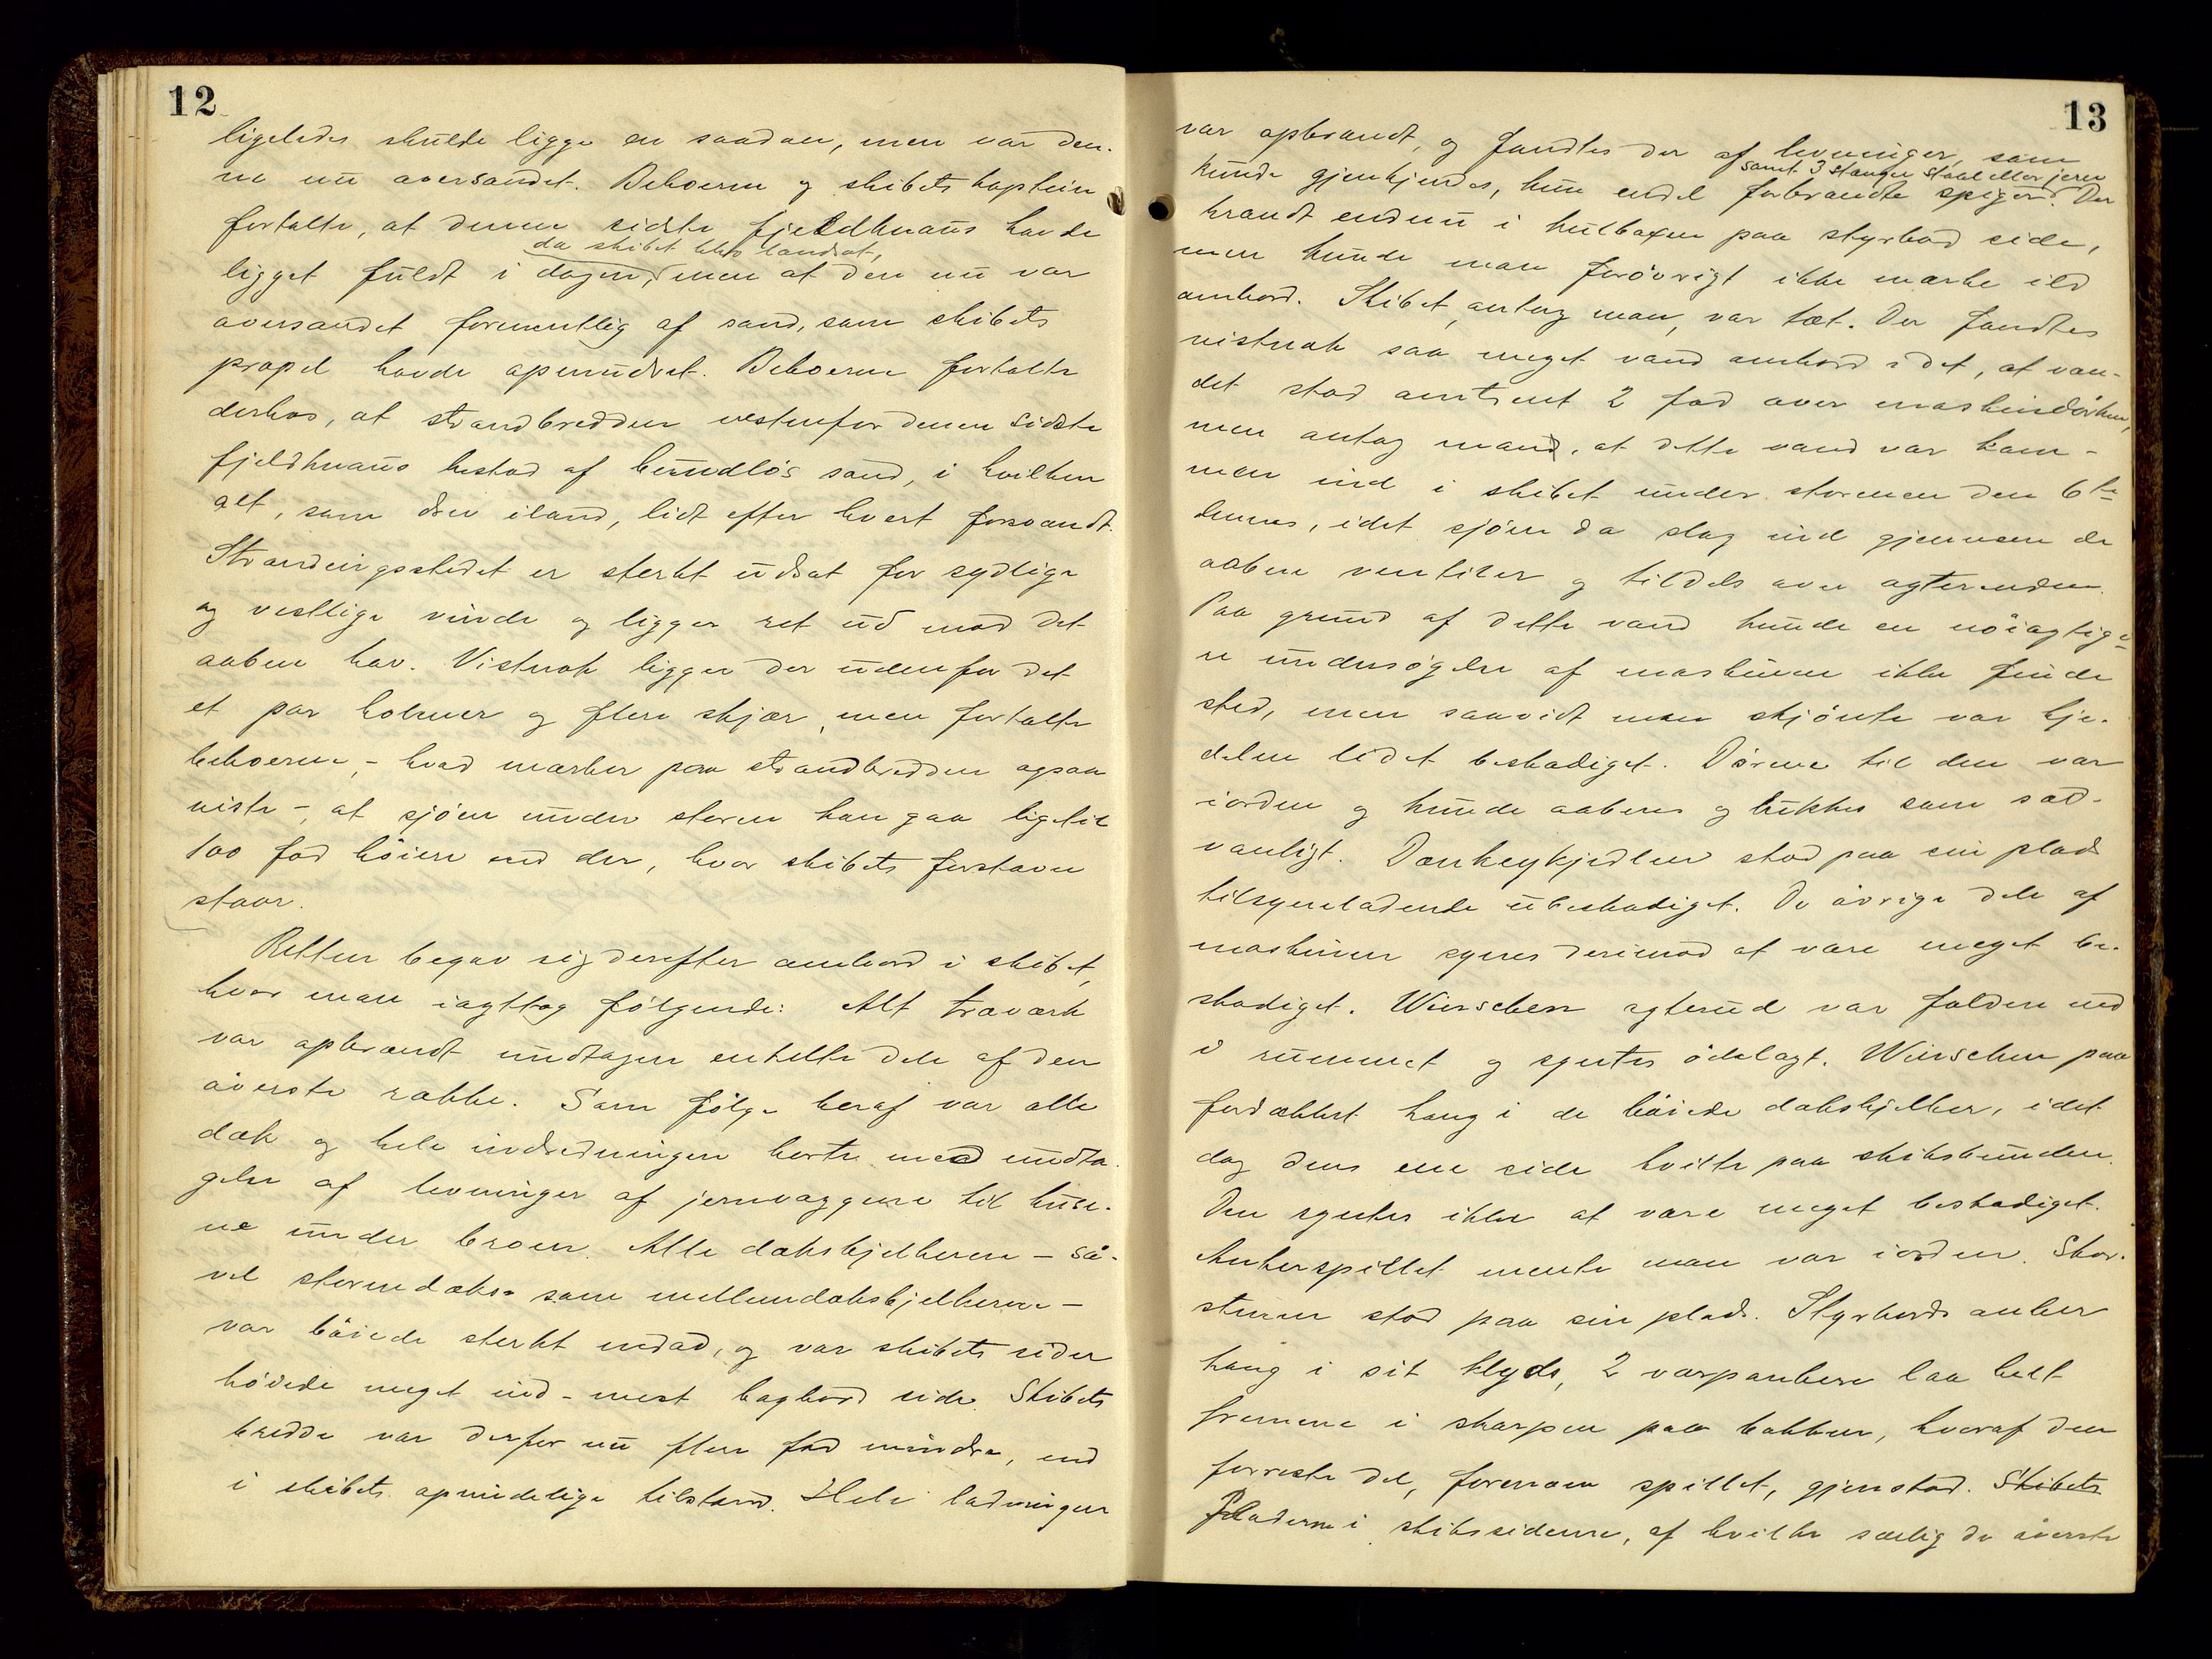 12
ligeledes skulde ligge en saadan, men var den-
ne nu oversandet. Beboerne og skibets kaptein
fortalte, at denne sidste fjeldknaus havde
da skibet blev landsat,
ligget fuldt i dagen, men at den nu var
oversandet formentlig af sand, som skibets
propel havde opmudret. Beboerne fortalte
derhos, at strandbredden vestenfor denne sidste
fjeldknaus bestod af bundløs sand, i hvilken
alt, som drev iland, lidt efter hvert forsvandt.
Strandingsstedet er sterkt udsat for sydlige
og vestlige vinde og ligger ret ud mod det
aabne hav. Vistnok ligger der udenfor det
et par holmer og flere skjær, men fortalte
beboerne, - hvad merker paa strandbredden ogsaa
viste -, at sjøen under storm kan gaa ligetil
100 fod høiere end der, hvor skibets forstavn
staar.
Retten begav sig derefter ombord i skibet,
hvor man iagttog følgende: Alt træværk
var opbrændt undtagen enkelte dele af den
øverste række. Som følge heraf var alle
dæk og hele indredningen borte med undta-
gelse af levninger af jernvæggene til huse-
ne under broen. Alle dæksbjelkerne - så-
vel stormdæks- som mellemdæksbjelkerne -
var bøiede sterkt nedad, og var skibets sider
bøiede meget ind - mest bagbord side. Skibets
bredde var derfor nu flere fod mindre, end
i skibets oprindelige tilstand. Hele ladningen
13
var opbrændt, og fandtes der af levninger, som
samt 3 stænger staal eller jern
kunde gjenkjendes, kun endel forbrændte spiger. Der
brændt endnu i kulboxen paa styrbord side,
men kunde man forøvrigt ikke merke ild
ombord. Skibet, antog man, var tæt. Der fandtes
vistnok saa meget vand ombord i det, at van-
det stod omtrent 2 fod over maskindørken,
men antog man, at dette vand var kom-
men ind i skibet under stormen den 6te
dennes, idet sjøen da slog ind gjennem de
aabne ventiler og tildels over agterenden.
Paa grund af dette vand kunde en nøiagtige-
re undersøgelse af maskinen ikke finde
sted, men saavidt man skjønte var kje-
delen lidet beskadiget. Dørene til den var
iorden og kunde aabnes og lukkes som sæd-
vanligt. Donkeykjedlen stod paa sin plads
tilsyneladende ubeskadiget. De øvrige dele af
maskinen synes derimod at være meget be-
skadiget. Winschen agterud var falden ned
i rummet og syntes ødelagt. Winschen paa
fordækket hang i de bøiede dæksbjelker, idet
dog dens ene side hvilte paa skibsbunden.
Den syntes ikke at være meget beskadiget.
Ankerspillet mente man var iorden. Skor-
stenen stod paa sin plads. Styrbords anker
hang i sit klyds, 2 varpankere laa helt
fremme i skarpen paa bakken, hvoraf den
forreste del, forenom spillet, gjenstod. Skibets
Pladerne i skibssiderne, af hvilke særlig de øverste